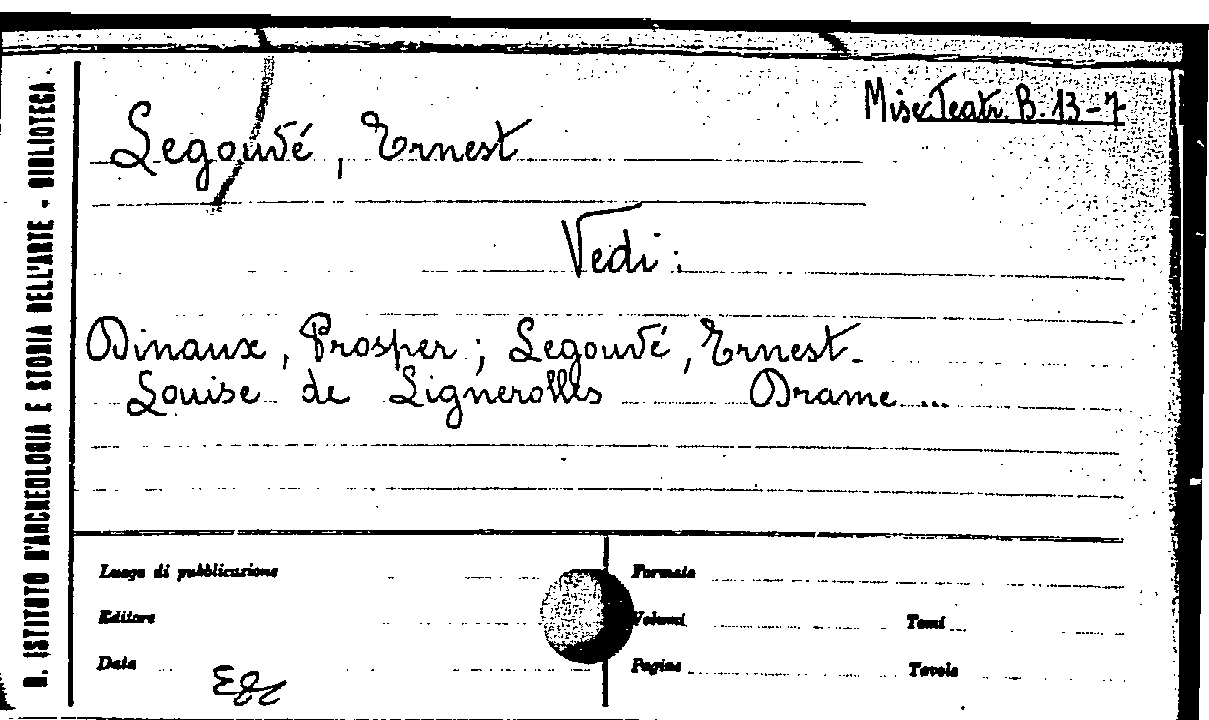 Misc. Teatr. B. 13-7
Legouvé, Ernest
Vedi:
Dinaux, Prosper; Legouvé, Ernest-
Louise de Lignerolls Drame...
R. ISTITUTO D'ARCHEOLOGIA E STORIA DELL'ARTE - BIBLIOTECA.
Luogo di pubblicazione
Formato
Editore
Volumi
Tomi
Data
Pagine
Tavole